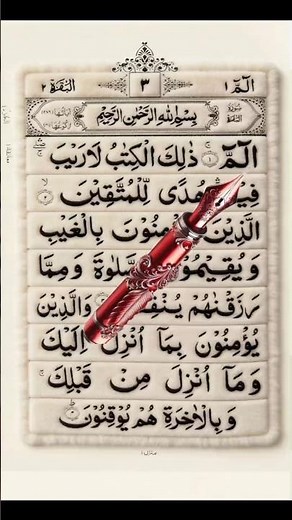 الٓمّٓ ١ ٣ اَلْبَقَرَة ٢
سُورَةُ الْبَقَرَة بِسْمِ اللّٰهِ الرَّحْمٰنِ الرَّحِيْمِ
الٓمّٓ ۚ‏ ۱ ذٰلِكَ الْكِتٰبُ لَا رَيْبَ
فِيْهِ هُدًى لِّلْمُتَّقِيْنَ ۙ‏ ۲
الَّذِيْنَ يُؤْمِنُوْنَ بِالْغَيْبِ
وَيُقِيْمُوْنَ الصَّلٰوةَ وَمِمَّا
رَزَقْنٰهُمْ يُنْفِقُوْنَ وَالَّذِيْنَ
يُؤْمِنُوْنَ بِمَآ اُنْزِلَ اِلَيْكَ
وَمَآ اُنْزِلَ مِنْ قَبْلِكَ ۚ
وَبِالْاٰخِرَةِ هُمْ يُوْقِنُوْنَ ؕ‏